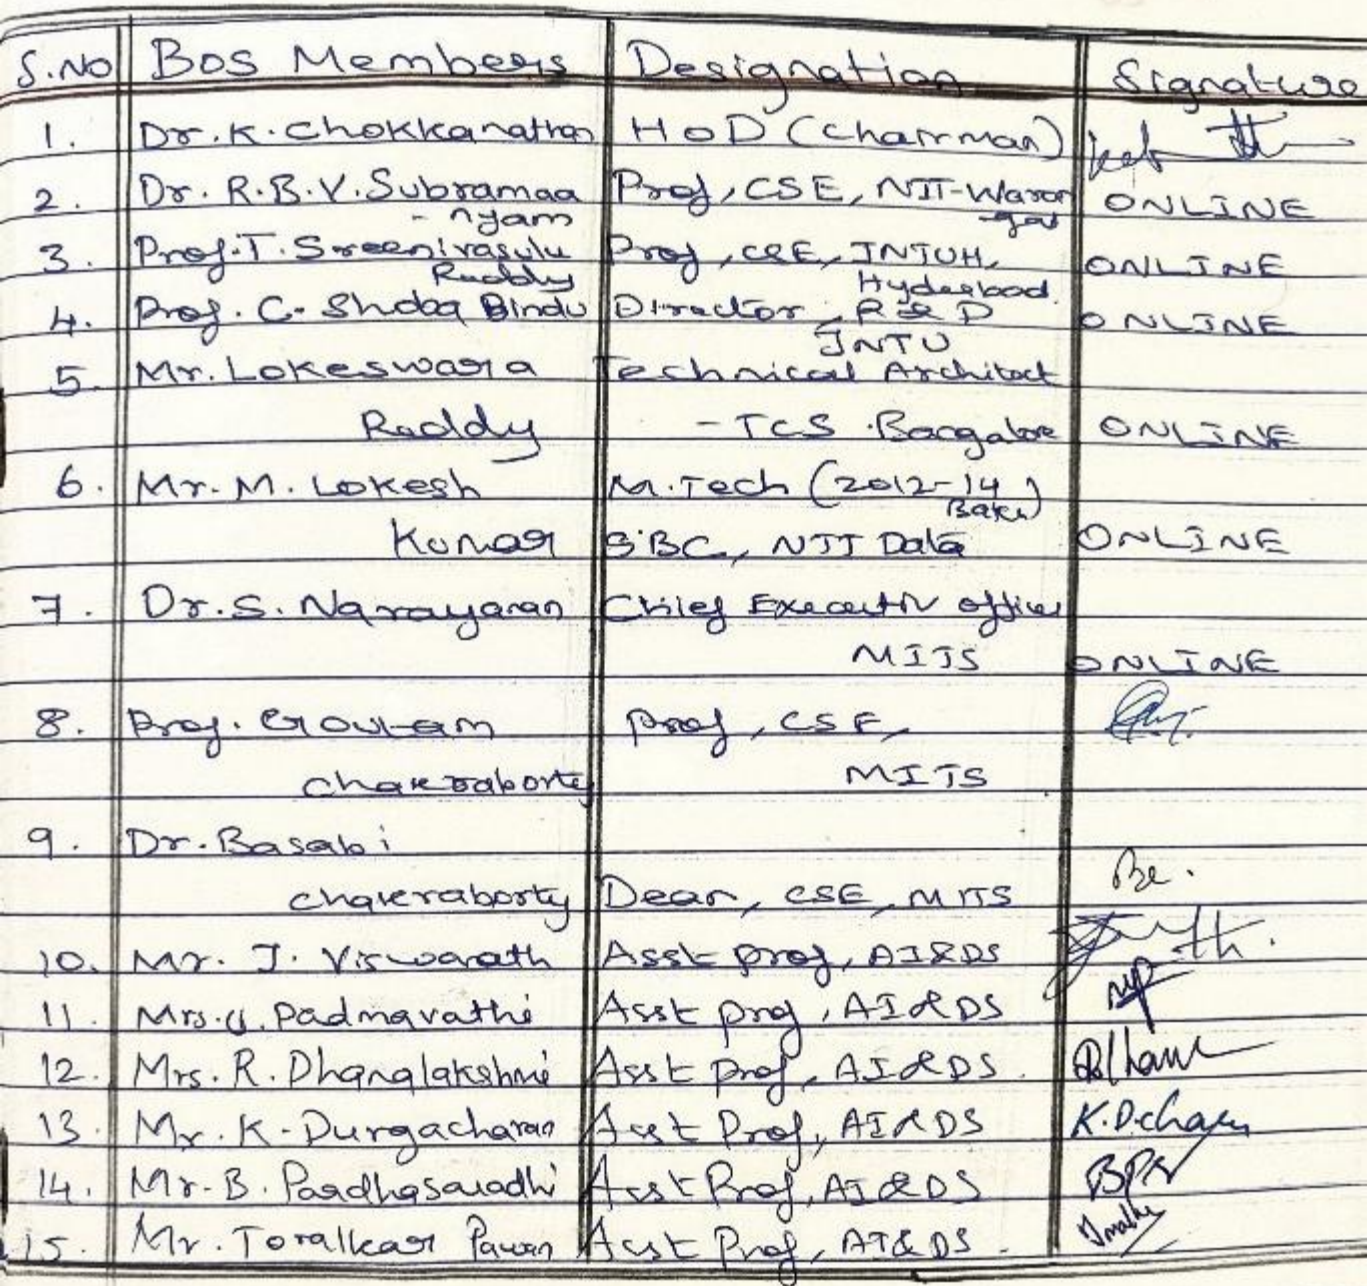 S.No Bos Members Designation Signature
1. Dr. K. Chokkanathan HoD (Chairman)
2. Dr. R.B.V. Subramaa Prof, CSE, NIT-Waran ONLINE
- nyam gal
3. Prof. T. Sreenivasulu Prof, CSE, JNTUH, ONLINE
Reddy Hyderabad.
4. Prof. C. Shoba Bindu Director, R & D ONLINE
JNTU
5. Mr. Lokeswara Technical Architect
Reddy - TCS Bangalore ONLINE
6. Mr. M. Lokesh M.Tech (2012-14
Kumar NTT Data ONLINE
7. Dr. S. Narayanan Chief Executiv officer
MITS ONLINE
8. Prof. Goutam Prof, CSE,
Chakraborty MITS
9. Dr. Basabi
Chakraborty Dean, CSE, MITS
10. Mr. J. Viswanath Asst prof, AI&DS
11. Mrs. Padmavathi Asst prof, AI&DS
12. Mrs. R. Dhanalakshmi Asst Prof, AI&DS.
13. Mr. K. Durgacharan Asst Prof, AI&DS K.D.charan
14. Mr. B. Pardhasaradhi Asst Prof, AI&DS
15. Mr. Toralkar Pawan Asst Prof, AI&DS.